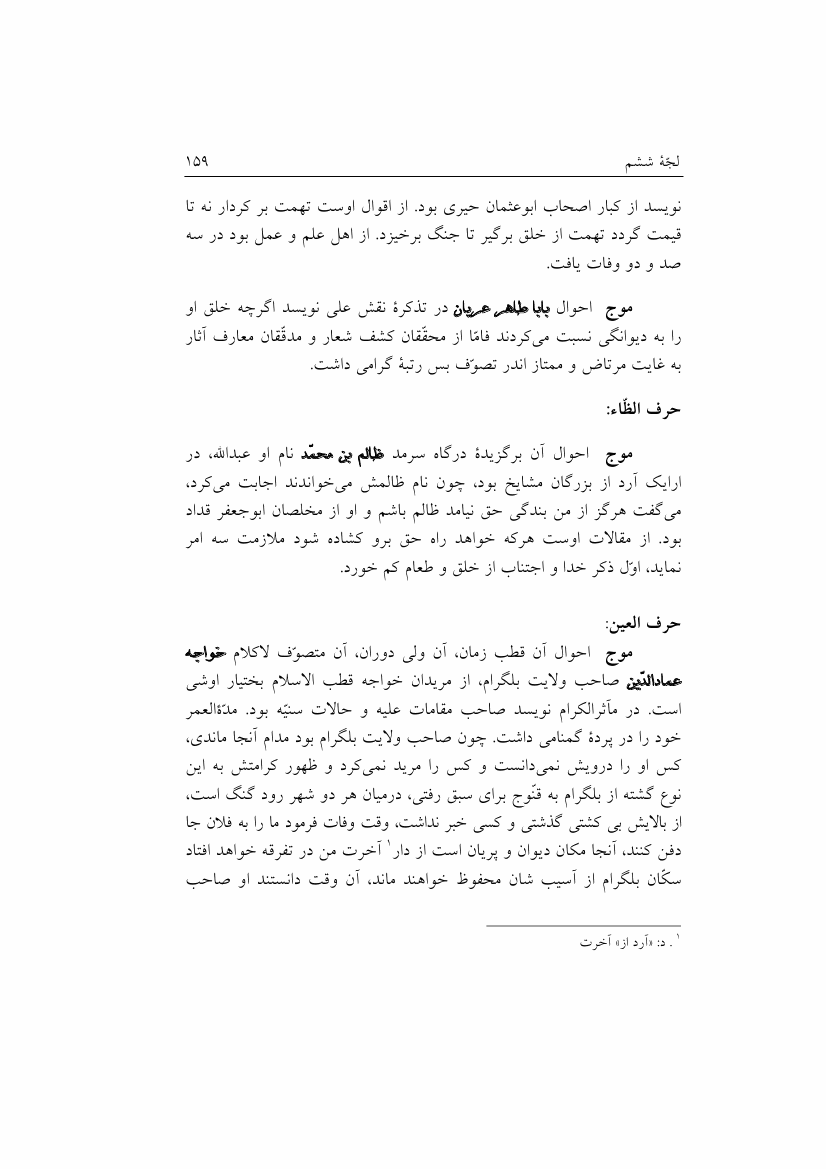 لجّۀ ششم ۱۵۹
نویسد از کبار اصحاب ابوعثمان حیری بود. از اقوال اوست تهمت بر کردار نه تا
قیمت گردد تهمت از خلق برگیر تا جنگ برخیزد. از اهل علم و عمل بود در سه
صد و دو وفات یافت.
موج احوال بابا طاهر عریان در تذکرۀ نقش علی نویسد اگرچه خلق او
را به دیوانگی نسبت می‌کردند فامّا از محقّقان کشف شعار و مدقّقان معارف آثار
به غایت مرتاض و ممتاز اندر تصوّف بس رتبۀ گرامی داشت.
حرف الظّاء:
موج احوال آن برگزیدۀ درگاه سرمد ظالم بن محمّد نام او عبدالله، در
ارایک آرد از بزرگان مشایخ بود، چون نام ظالمش می‌خواندند اجابت می‌کرد،
می‌گفت هرگز از من بندگی حق نیامد ظالم باشم و او از مخلصان ابوجعفر قداد
بود. از مقالات اوست هرکه خواهد راه حق برو کشاده شود ملازمت سه امر
نماید، اوّل ذکر خدا و اجتناب از خلق و طعام کم خورد.
حرف العین:
موج احوال آن قطب زمان، آن ولی دوران، آن متصوّف لاکلام خواجه
عمادالدّین صاحب ولایت بلگرام، از مریدان خواجه قطب الاسلام بختیار اوشی
است. در مآثرالکرام نویسد صاحب مقامات علیه و حالات سنیّه بود. مدّةالعمر
خود را در پردۀ گمنامی داشت. چون صاحب ولایت بلگرام بود مدام آنجا ماندی،
کس او را درویش نمی‌دانست و کس را مرید نمی‌کرد و ظهور کرامتش به این
نوع گشته از بلگرام به قنّوج برای سبق رفتی، درمیان هر دو شهر رود گنگ است،
از بالایش بی کشتی گذشتی و کسی خبر نداشت، وقت وفات فرمود ما را به فلان جا
دفن کنند، آنجا مکان دیوان و پریان است از دار۱ آخرت من در تفرقه خواهد افتاد
سکّان بلگرام از آسیب شان محفوظ خواهند ماند، آن وقت دانستند او صاحب
۱ . د: «آرد از» آخرت